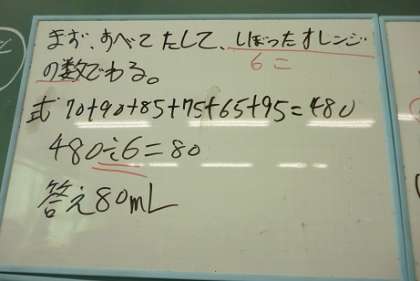 まず、すべてたして、しぼったオレンジ
6こ
の数でわる。
式 70+90+85+75+65+95=480
480÷6=80
答え80mL